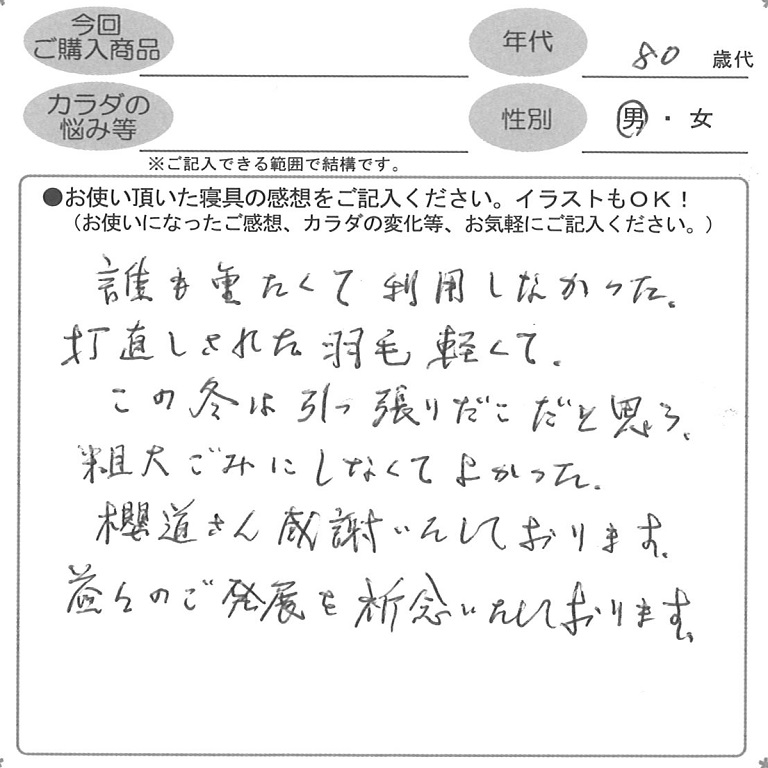 今回
ご購入商品
年代
80 歳代
カラダの
悩み等
性別
男・女
※ご記入できる範囲で結構です。
●お使い頂いた寝具の感想をご記入ください。イラストもOK！
（お使いになったご感想、カラダの変化等、お気軽にご記入ください。）
誰も重たくて利用しなかった。
打直しされた羽毛軽くて。
この冬は引っ張りだこだと思う。
粗大ごみにしなくてよかった。
櫻道さん感謝いたしております。
益々のご発展を祈念いたしております。